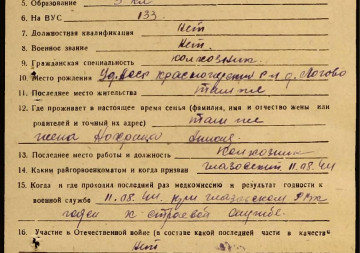 5. Образование 3 кл
6. На ВУС 133
7. Должностная квалификация нет
8. Военное звание нет.
9. Гражданская специальность колхозник
10. Место рождения Уд. Асср Красногорский р-н д.
11. Последнее место жительства там же
12. Где проживает в настоящее время семья (фамилия, имя и отчество жены или
родителей и точный их адрес) там же
жена
13. Последнее место работы и должность Колхозник
14. Каким райгорвоенкоматом и когда призван Глазовский 11.08.41
15. Когда и где проходил последний раз медкомиссию и результат годности к
военной службе 11.08.41. при Глазовском РВК
годен к строевой службе.
16. Участие в Отечественной войне (в составе какой последней части и в качестве
Нет